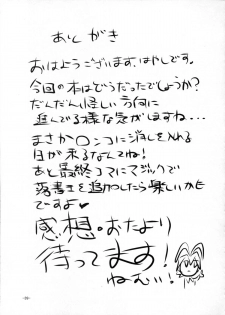 あとがき
おはようございます、はやしです。
今回の本はどうだったでしょうか?
だんだん怪しい方向に
進んでる様な気がしますね…
まさか○ンコに消しを入れる
日が来るなんてね!
あと最終コマにマジックで
落書きを追加したら楽しいかも
ですよ♥
感想。おたより
待ってます!
ねむい!